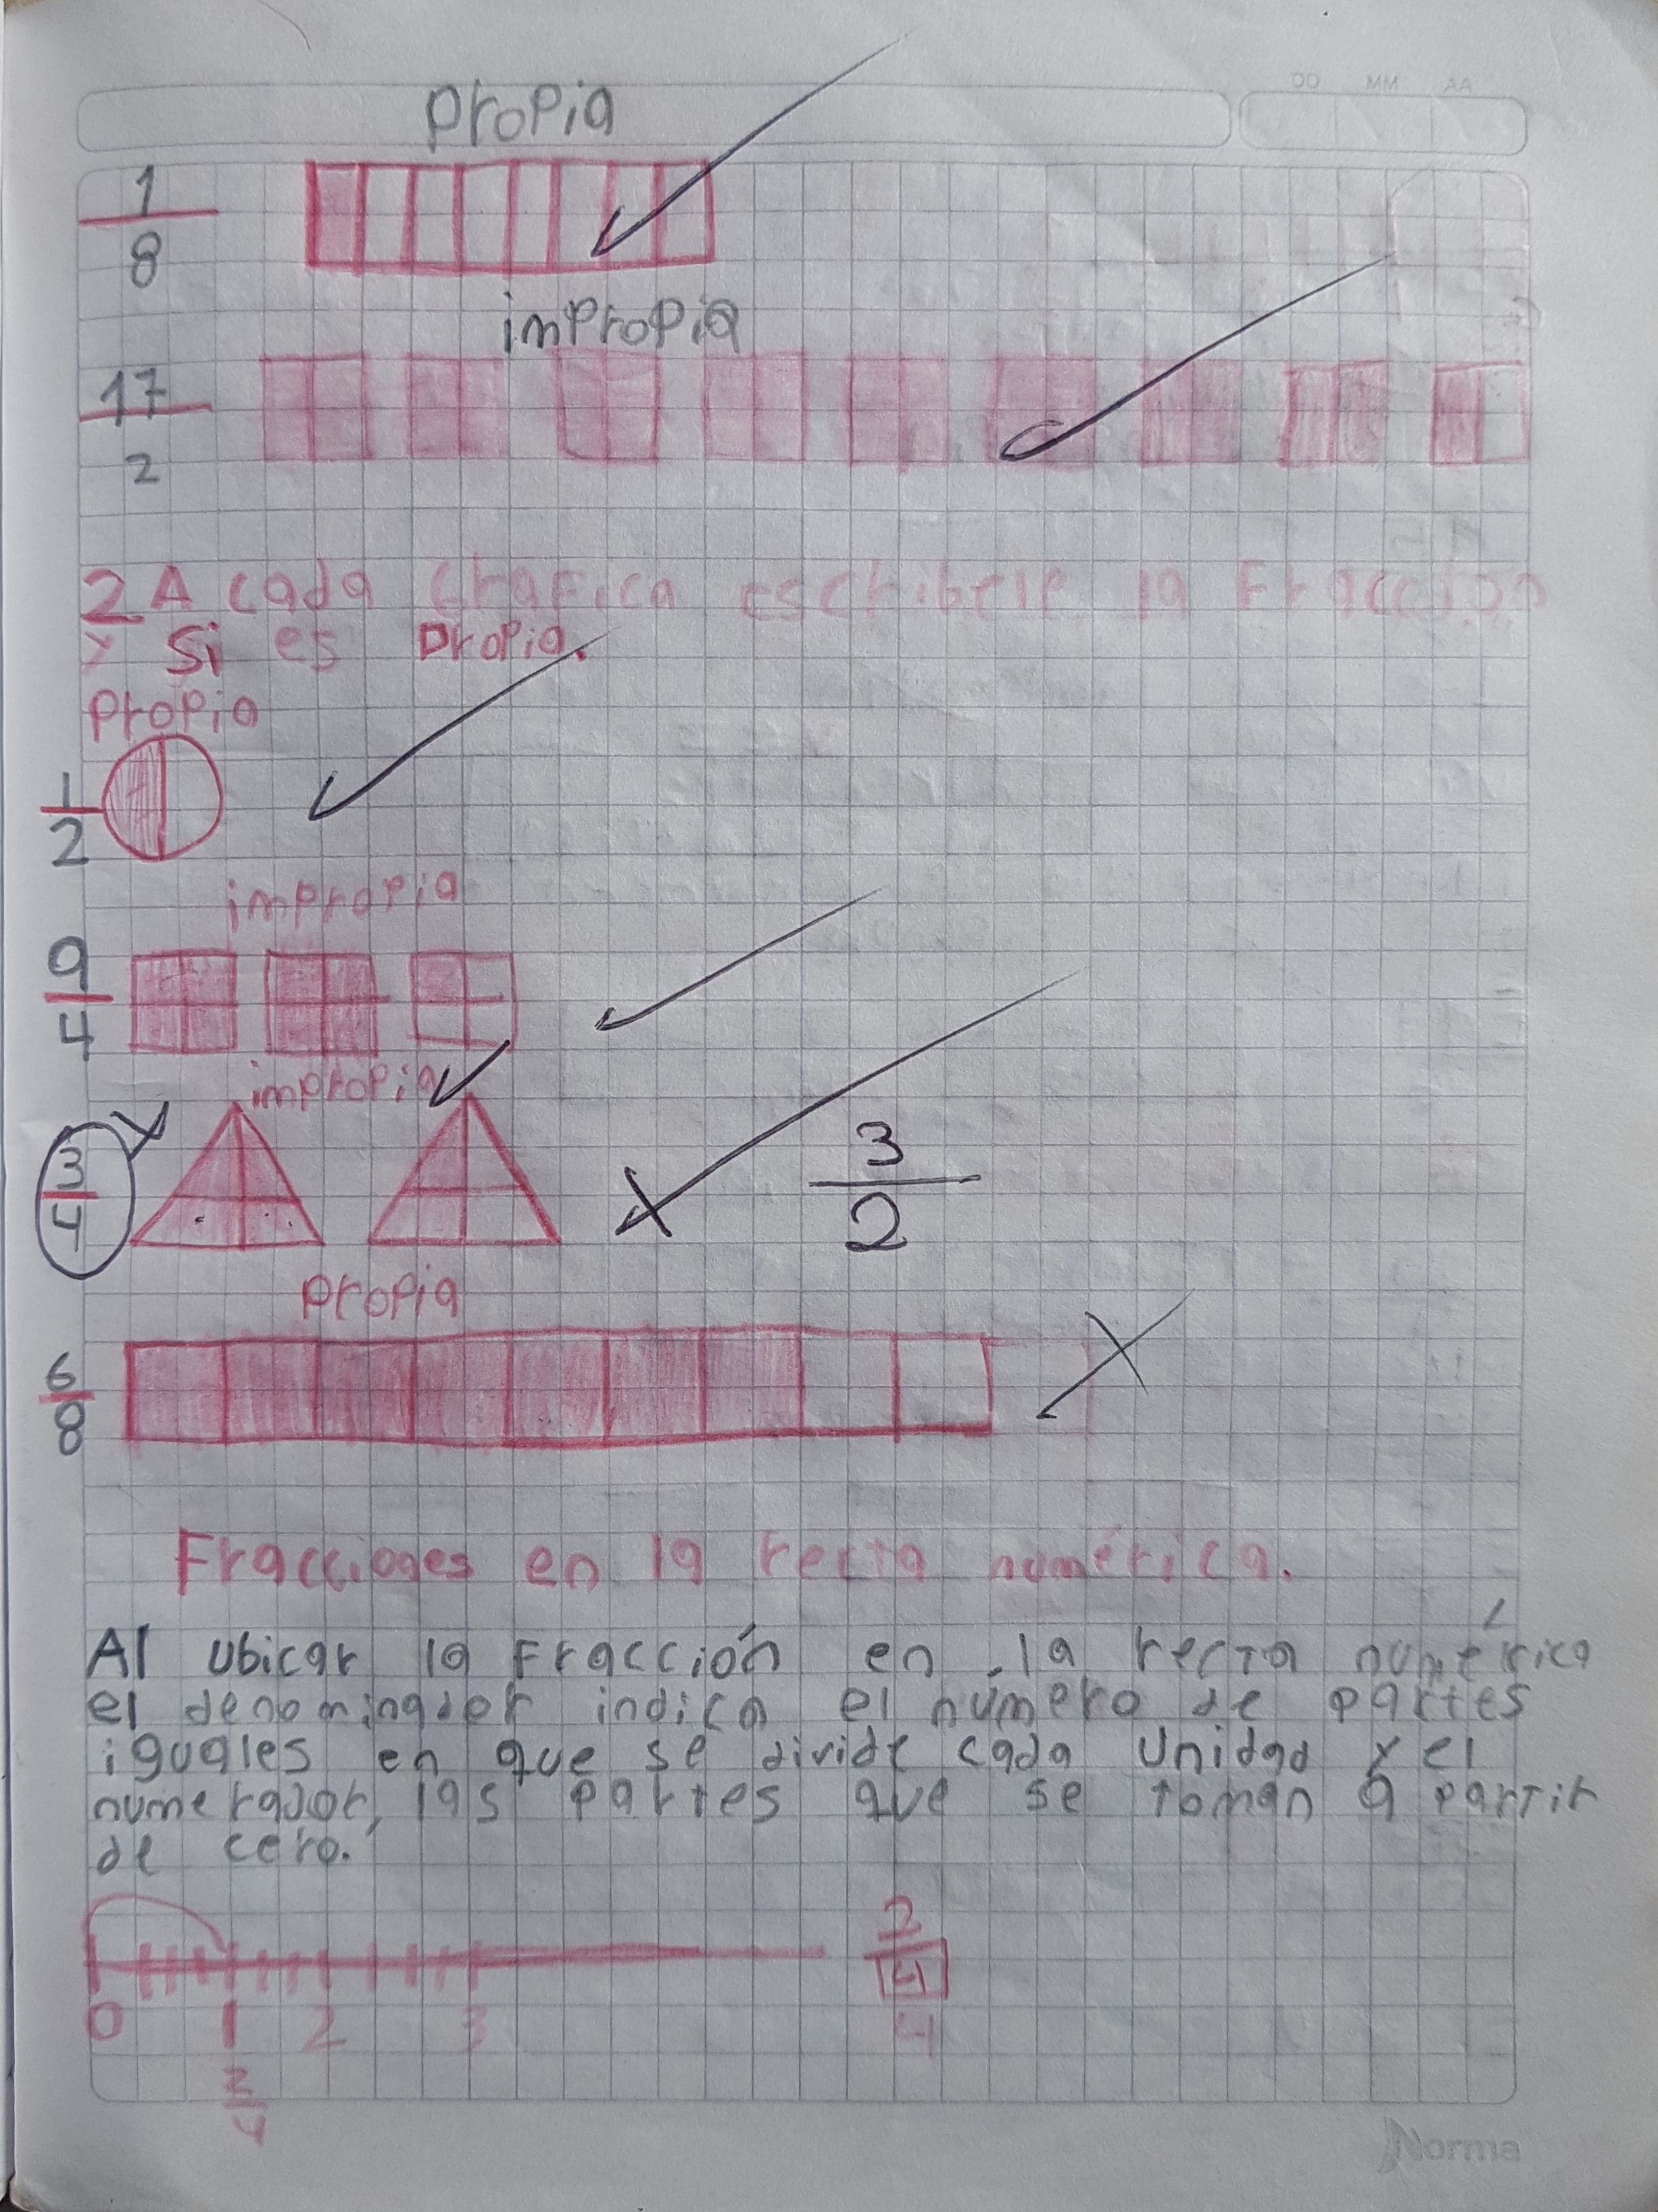 AA MM DD
Propia
1
8
impropia
17
2
2 A cada Grafica escribele la Fracción
y Si es propia.
propia
1
2
impropia
9
4
impropia
3
4
3
2
propia
6
8
Fracciones en la recta numérica.
Al Ubicar la Fracción en la recta numérica
el denominador indica el número de partes
iguales en que se divide cada Unidad y el
numerador, las partes que se toman a partir
de cero.
2
4
4
0 1 2 3
2
4
Norma